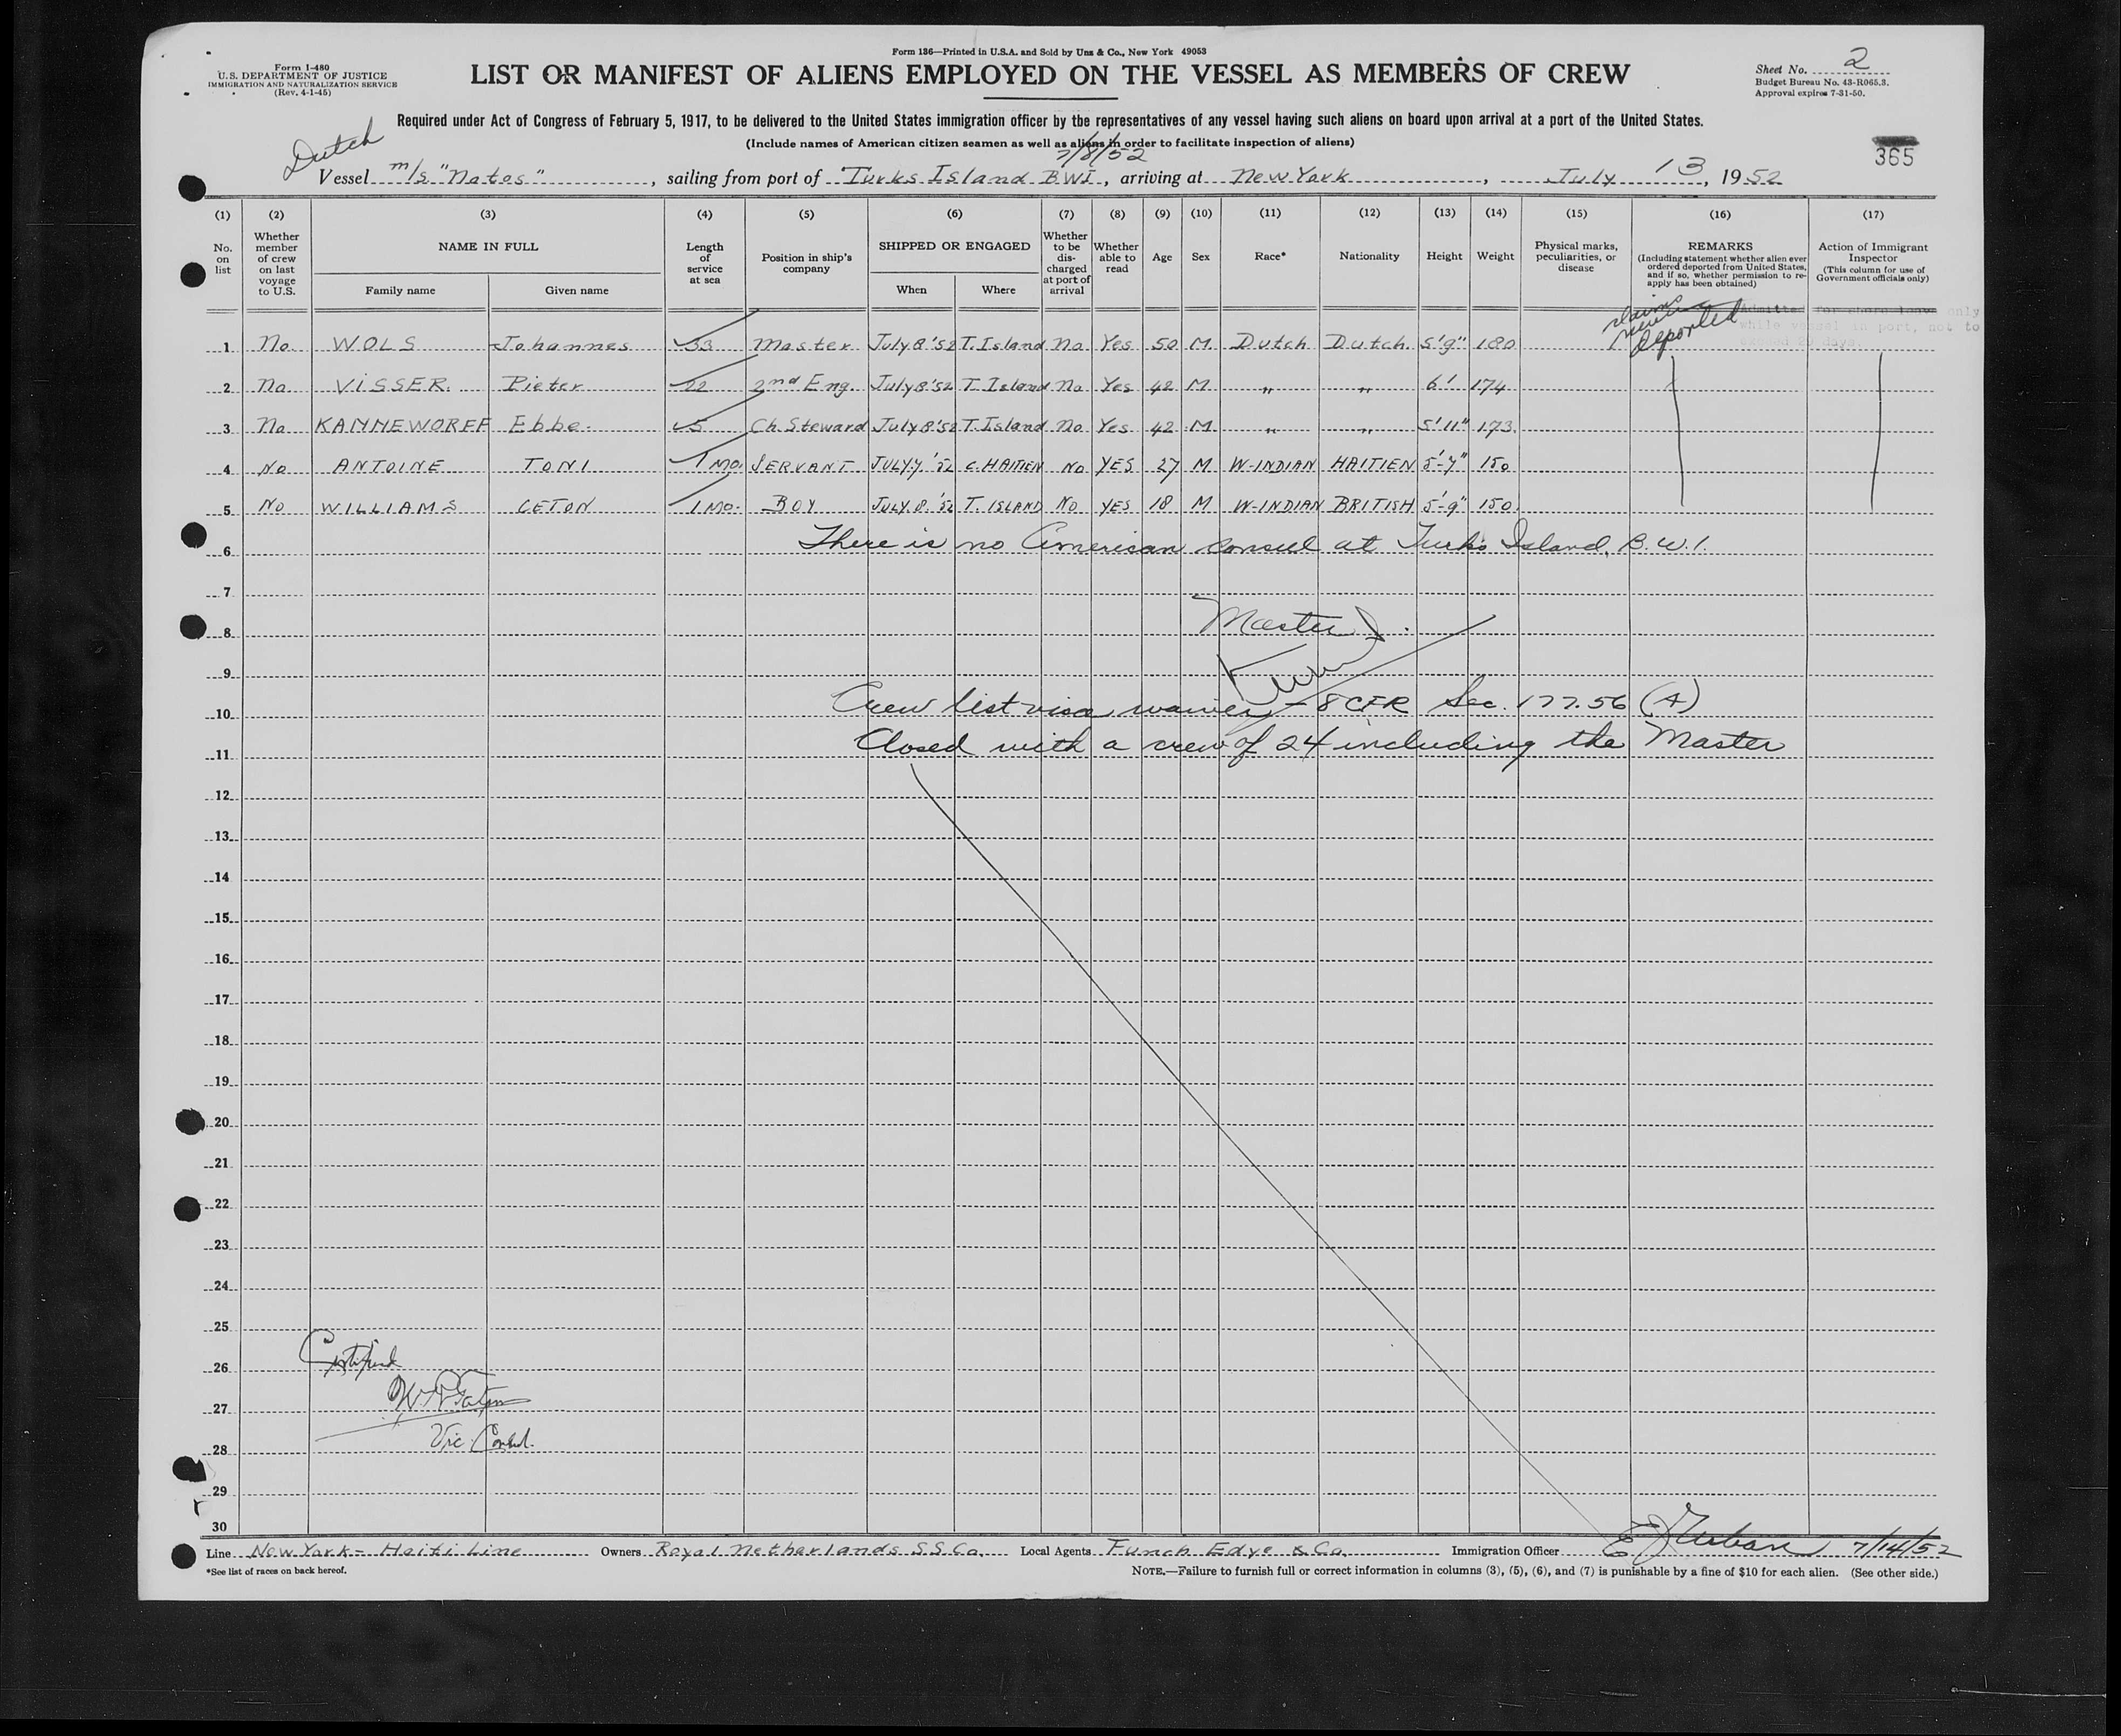 Form 136—Printed in U.S.A. and Sold by Unz & Co., New York 49053
Form I-480
U.S. DEPARTMENT OF JUSTICE
IMMIGRATION AND NATURALIZATION SERVICE
(Rev. 4-1-45)
LIST OR MANIFEST OF ALIENS EMPLOYED ON THE VESSEL AS MEMBERS OF CREW
Sheet No. 2
Budget Bureau No. 43-R065.3.
Approval expires 7-31-50.
Required under Act of Congress of February 5, 1917, to be delivered to the United States immigration officer by the representatives of any vessel having such aliens on board upon arrival at a port of the United States.
(Include names of American citizen seamen as well as aliens in order to facilitate inspection of aliens)
365
Dutch
7/8/52
Vessel m/s "Natos", sailing from port of Turks Island BWI, arriving at New York, July 13, 1952
(1) (2) (3) (4) (5) (6) (7) (8) (9) (10) (11) (12) (13) (14) (15) (16) (17)
No. on list
Whether member of crew on last voyage to U.S.
NAME IN FULL
Family name Given name
Length of service at sea
Position in ship's company
SHIPPED OR ENGAGED
When Where
Whether to be discharged at port of arrival
Whether able to read
Age
Sex
Race*
Nationality
Height
Weight
Physical marks, peculiarities, or disease
REMARKS
(Including statement whether alien ever ordered deported from United States, and if so, whether permission to reapply has been obtained)
Action of Immigrant Inspector
(This column for use of Government officials only)
Deported
only
while vessel in port, not to
days
1 No WOLS Johannes 33 Master July 8 '52 T. Island No Yes 50 M Dutch Dutch 5'9" 180
2 No VISSER. Pieter 22 2nd Eng. July 8 '52 T. Island No Yes 42 M " " 6' 174
3 No KANNEWORFF Ebbe. 5 Ch. Steward July 8 '52 T. Island No Yes 42 M " " 5'11" 173
4 NO ANTOINE TONI 1 MO. SERVANT JULY 7 '52 C. HAITIEN NO YES 27 M W-INDIAN HAITIEN 5'-7" 150
5 NO WILLIAMS CETON 1 MO. BOY JULY 8. '52 T. ISLAND NO YES 18 M W-INDIAN BRITISH 5'-9" 150
6 There is no American consul at Turks Island, B.W.I.
7
8 Master
9
10 Crew list visa waiver - 8 CFR Sec. 177.56 (A)
11 Closed with a crew of 24 including the Master
12
13
14
15
16
17
18
19
20
21
22
23
24
25
26 Certified
27
28 Vic. Consul.
29
30
Line New York - Haiti Line Owners Royal Netherlands S.S. Co. Local Agents Funch Edye & Co. Immigration Officer 7/14/52
*See list of races on back hereof.
NOTE.—Failure to furnish full or correct information in columns (3), (5), (6), and (7) is punishable by a fine of $10 for each alien. (See other side.)